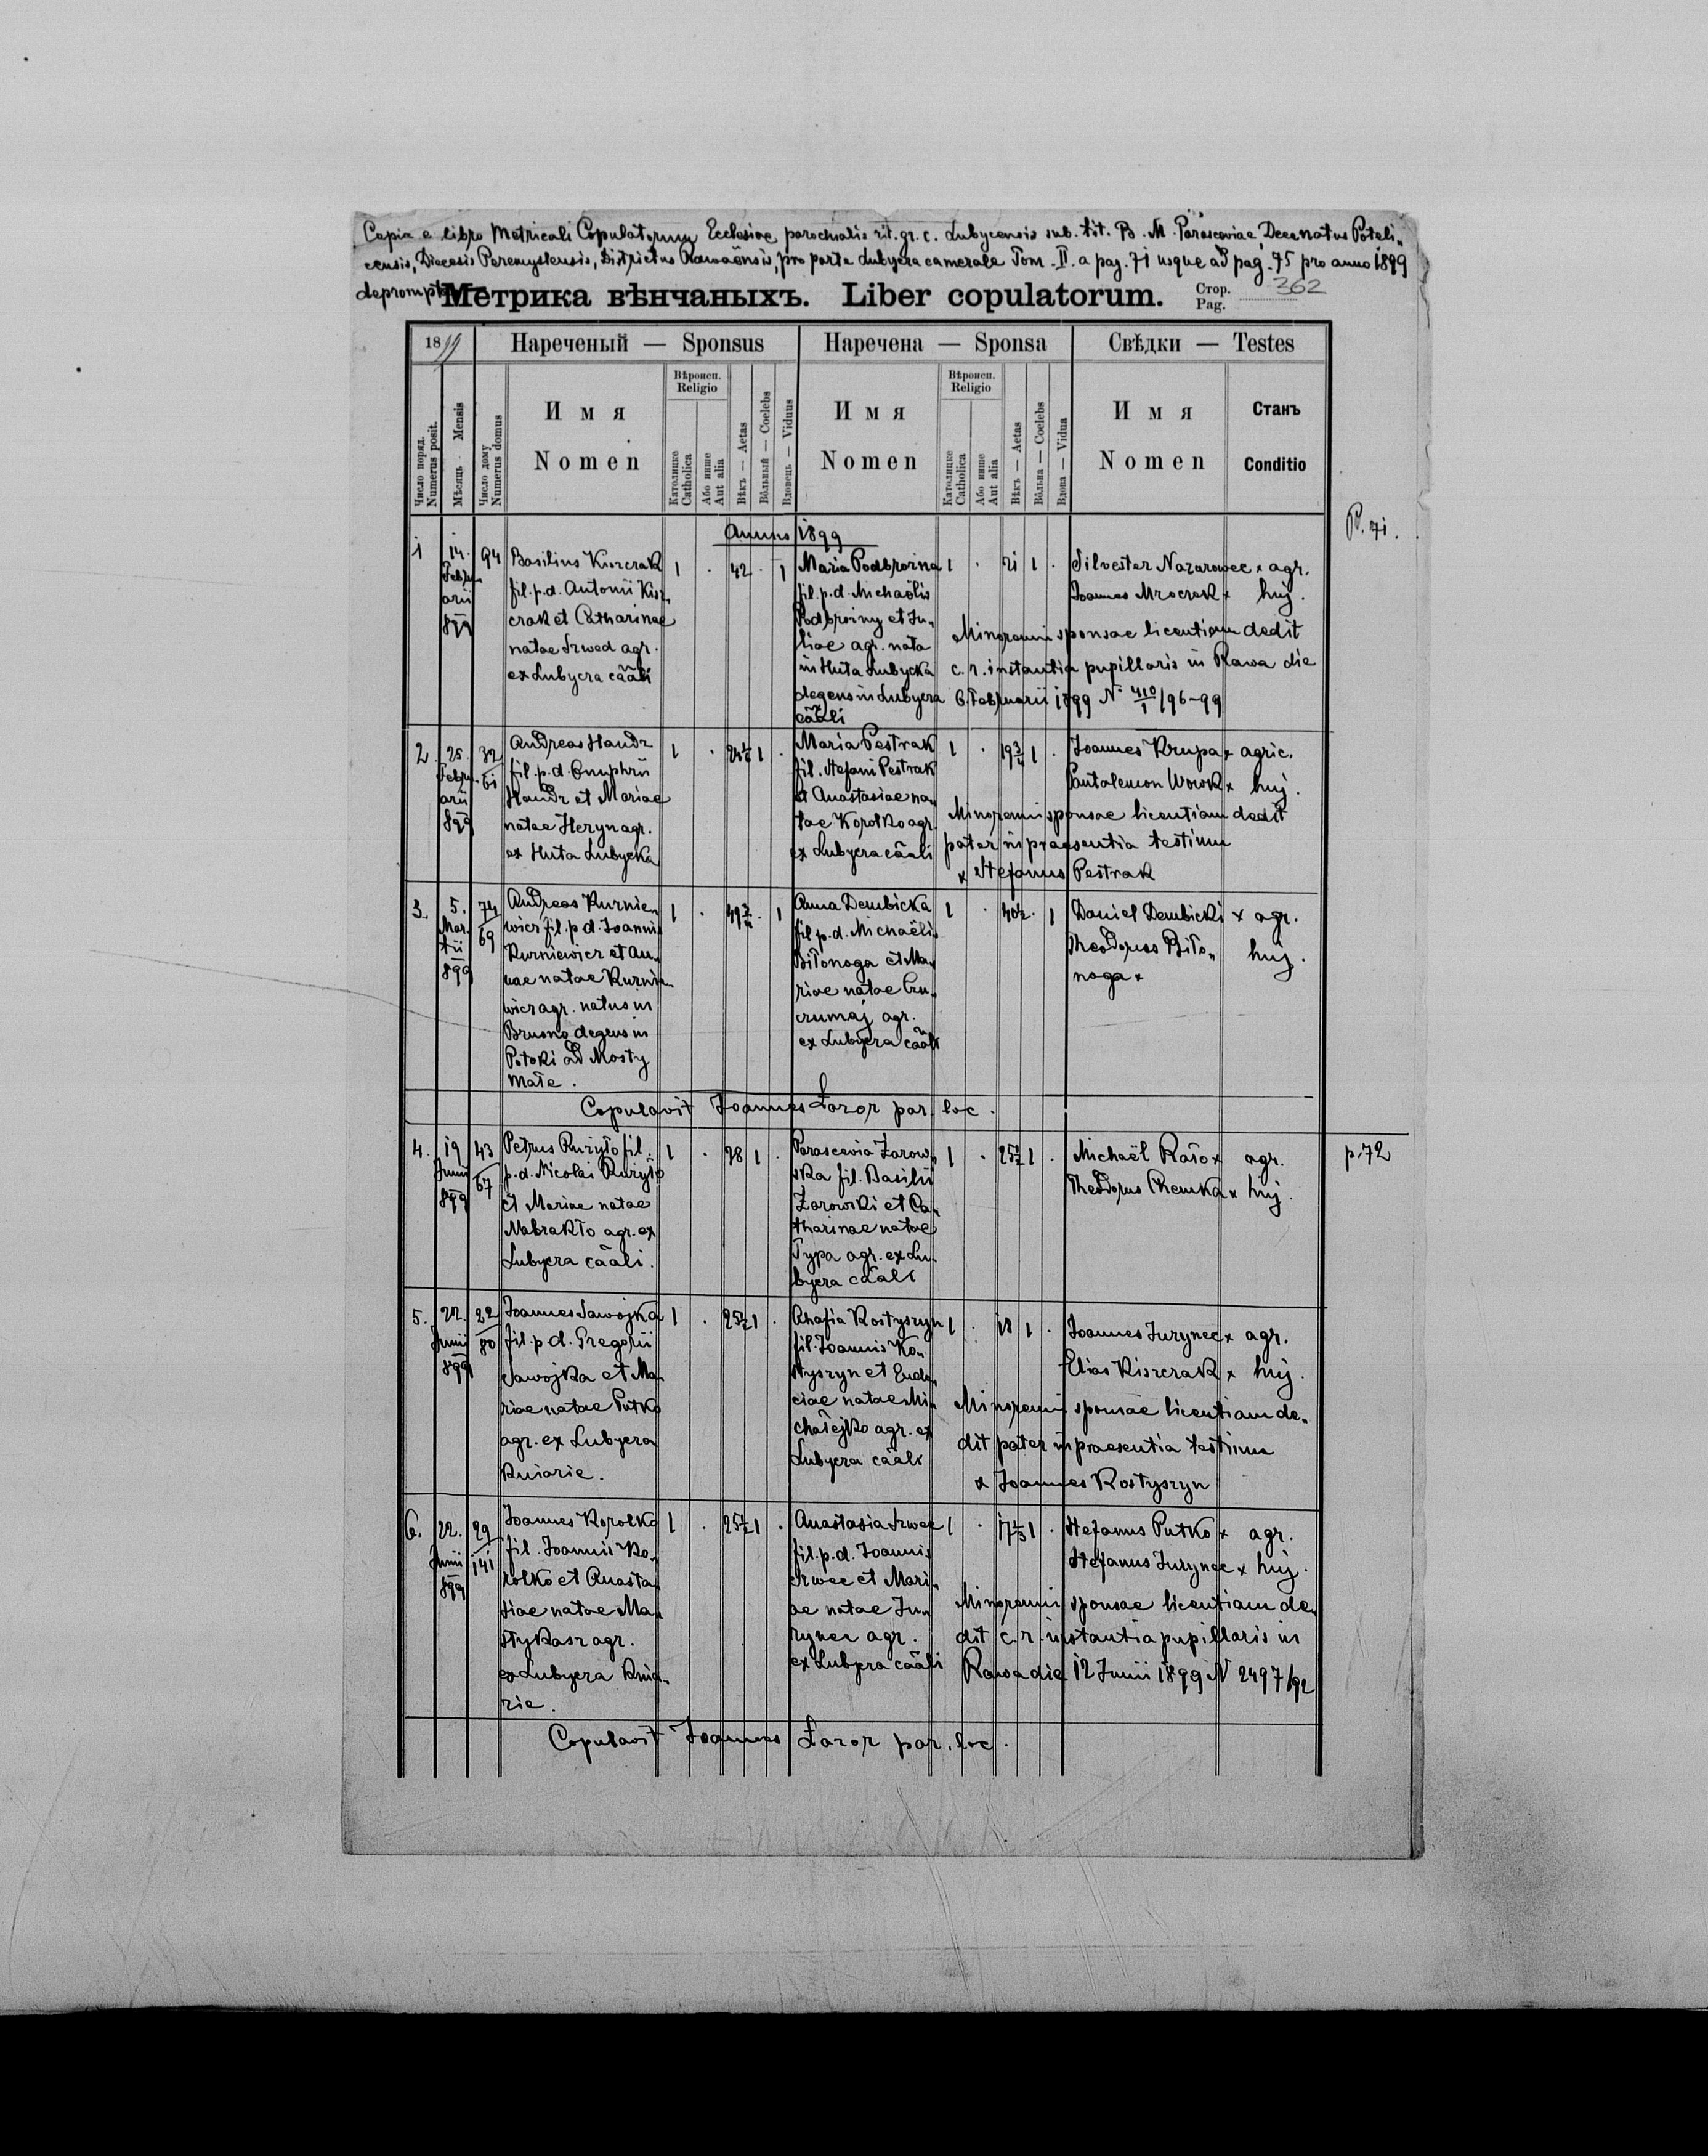 Copia e libro Metricali Copulatorum Ecclesiae parochialis rit. gr. c. Lubycensis sub. tit. B. M. Parasceviae, Decanatus Poteli„
censis, Diecesis Peremysliensis, Districtus Rawaënsis, pro parte Lubycza camerale Tom. II. a pag. 71 usque ad pag. 75 pro anno 1899
deprompta
Метрика вѣнчаныхъ. Liber copulatorum. Стор. Pag. 362
1899 Нареченый — Sponsus Наречена — Sponsa Свѣдки — Testes
Число поряд. Numerus posit.
Мѣсяць Mensis
Число дому Numerus domus
Имя Nomen
Вѣроисп. Religio
Католицке Catholica
Або инше Aut alia
Вѣкъ — Aetas
Вôльный — Coelebs
Вдовець — Viduus
Имя Nomen
Вѣроисп. Religio
Католицке Catholica
Або инше Aut alia
Вѣкъ — Aetas
Вôльна — Coelebs
Вдова — Vidua
Имя Nomen
Станъ Conditio
Anno 1899
P. 71.
1 14. Febru„ arii 899 94
Basilius Kiszczak
fil. p. d. Antonii Kisz„
czak et Catharinae
natae Szwed agr.
ex Lubycza cāāli
1 . 42 . 1
Maria Podbrozna
fil. p. d. Michaëlis
Podbrozny et Ju„
liae agr. nata
in Huta Lubycka
degens in Lubycza
cāāli
1 . 21 1 .
Silvester Nazarowec x agr.
Joannes Mroczek x huj.
Minorenni sponsae licentiam dedit
c. r. instantia pupillaris in Rawa die
6. Februarii 1899 N 410/1 /96-99
2. 25. Febru„ arii 899 32/61
Andreas Handz
fil. p. d. Onuphrii
Handz et Mariae
natae Heryn agr.
ex Huta Lubycka
1 . 1 .
Maria Pestrak
fil. Stefani Pestrak
et Anastasiae na„
tae Korolko agr.
ex Lubycza cāāli
1 . 19 3/4 1 .
Joannes Krupa x agric.
Pantalemon Wowk x huj.
Minorenni sponsae licentiam dedit
pater in praesentia testium
x Stefanus Pestrak
3. 5. Mar„ tii 899 74/69
Andreas Kurnie„
wicz fil. p. d. Joannis
Kurniewicz et An„
nae natae Kurnie„
wicz agr. natus in
Brusno degens in
Potoki ad Mosty
małe.
1 . . 1
Anna Dembicka
fil p. d. Michaëlis
Biłonoga et Ma„
riae natae
agr.
ex Lubycza cāāli
1 . 40 1/2 . 1
Daniel Dembicki x agr.
Theodorus Biło„ huj.
noga x
Copulavit Joannes Łazor par. loc.
4. 19 Junii 899 43/67
Petrus Kuryło fil.
p. d. Nicolai Kuryło
et Mariae natae
Mabrakło agr. ex
Lubycza cāāli.
1 . 28 1 .
Parascevia Zarow„
ska fil. Basilii
Zarowski et Ca„
tharinae natae
Typa agr. ex Lu„
bycza cāāli
1 . 25 1/2 1 .
Michaël Rało x agr.
Theodorus Chemka x huj.
p. 72
5. 22. Junii 899 22/80
Joannes Sawojka
fil. p. d. Gregorii
Sawojka et Ma„
riae natae Putko
agr. ex Lubycza
Kniazie.
1 . 25 1/2 1 .
Ahafia Kostyszyn
fil. Joannis Ko„
styszyn et Eudo„
ciae natae Mi„
chałejko agr. ex
Lubycza cāāli
1 . 18 1 .
Joannes Jurynec x agr.
Elias Kiszczak x huj.
Minorenni sponsae licentiam de„
dit pater in praesentia testium
x Joannes Kostyszyn
6. 22. Junii 899 29/141
Joannes Korolko
fil. Joannis Ko„
rolko et Anasta„
siae natae Ma„
stykasz agr.
ex Lubycza Knia„
zie.
1 . 25 1/2 1 .
Anastasia Szwec
fil. p. d. Joannis
Szwec et Mari„
ae natae Ju„
rynec agr.
ex Lubycza cāāli
1 . 1 .
Stefanus Putko x agr.
Stefanus Jurynec x huj.
Minorenni sponsae licentiam de„
dit c. r. instantia pupillaris in
Rawa die 12 Junii 1899 N 2497/92
Copulavit Joannes Łazor par. loc.